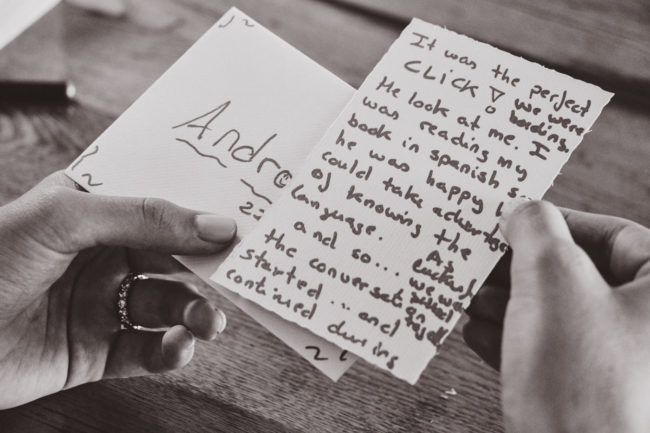 Andre
It was the perfect
CLICK! we were
boarding.
He look at me. I
was reading my
book in spanish
he was happy
could take advantage
of knowing the
language.
and so...
the conversation
started... and
continued during
we were